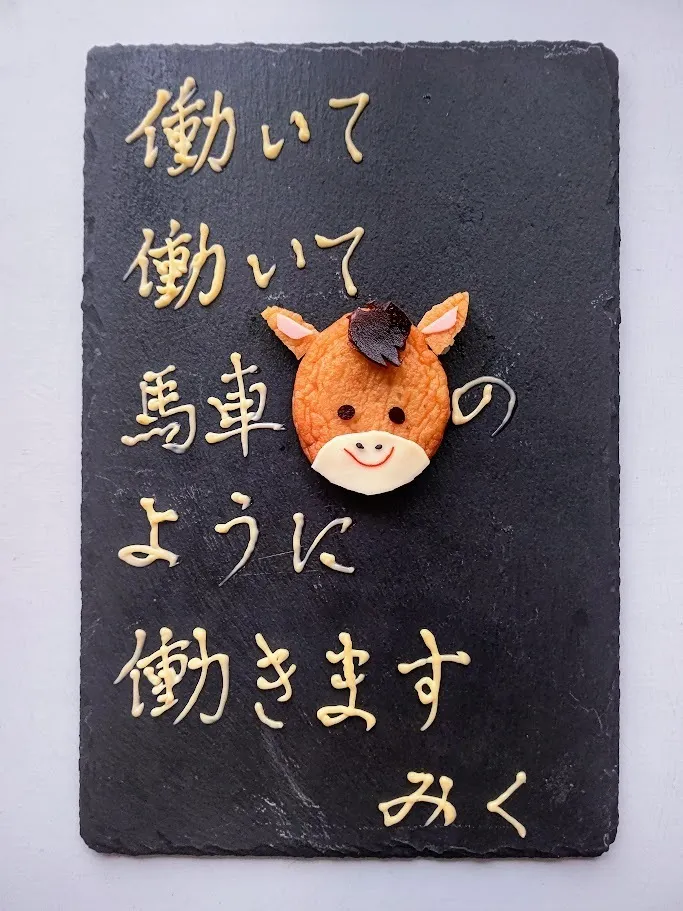 働いて
働いて
馬車の
ように
働きます
みく